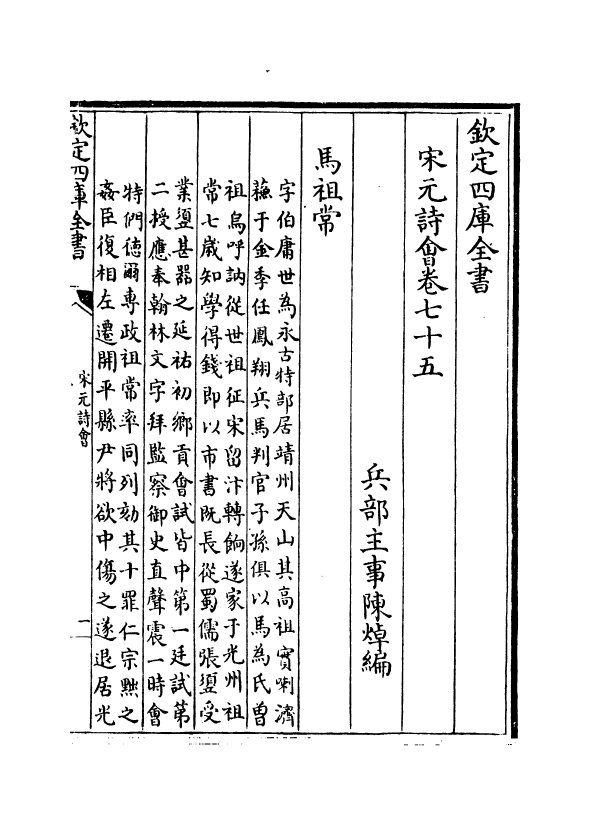 欽定四庫全書
宋元詩會卷七十五
兵部主事陳焯編
馬祖常
字伯庸世為永古特部居靖州天山其高祖實喇濟
蘓于金季任鳳翔兵馬判官子孫俱以馬為氏曽
祖烏呼訥從世祖征宋留汴轉餉遂家于光州祖
常七歳知學得錢即以市書既長從蜀儒張𬯀受
業𬯀甚器之延祐初鄉貢會試皆中第一廷試第
二授應奉翰林文字拜監察御史直聲震一時會
特們徳爾専政祖常率同列劾其十罪仁宗黙之
姦臣復相左遷開平縣尹將欲中傷之遂退居光
欽定四庫全書
宋元詩會
一